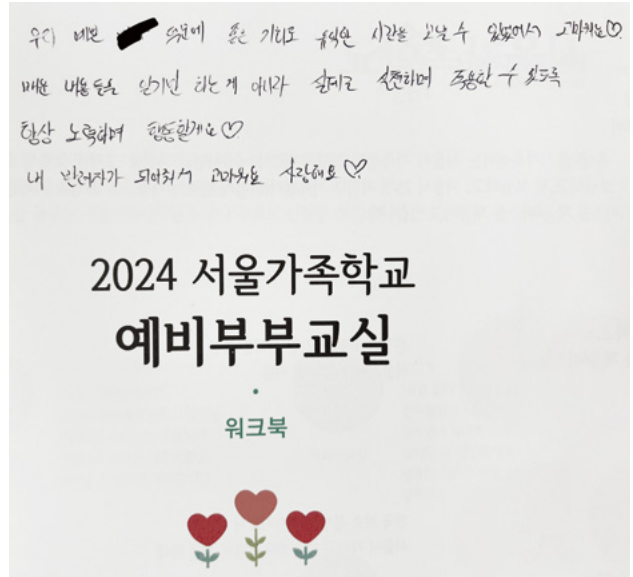 우리 예쁜 때문에 좋은 기회로 유익한 시간을 보낼 수 있었어서 고마워요♡
배운 내용들을 암기만 하는 게 아니라 실제로 실천하며 적용할 수 있도록
항상 노력하며 행동할게요♡
내 반려자가 되어줘서 고마워요 사랑해요♡
2024 서울가족학교
예비부부교실
워크북